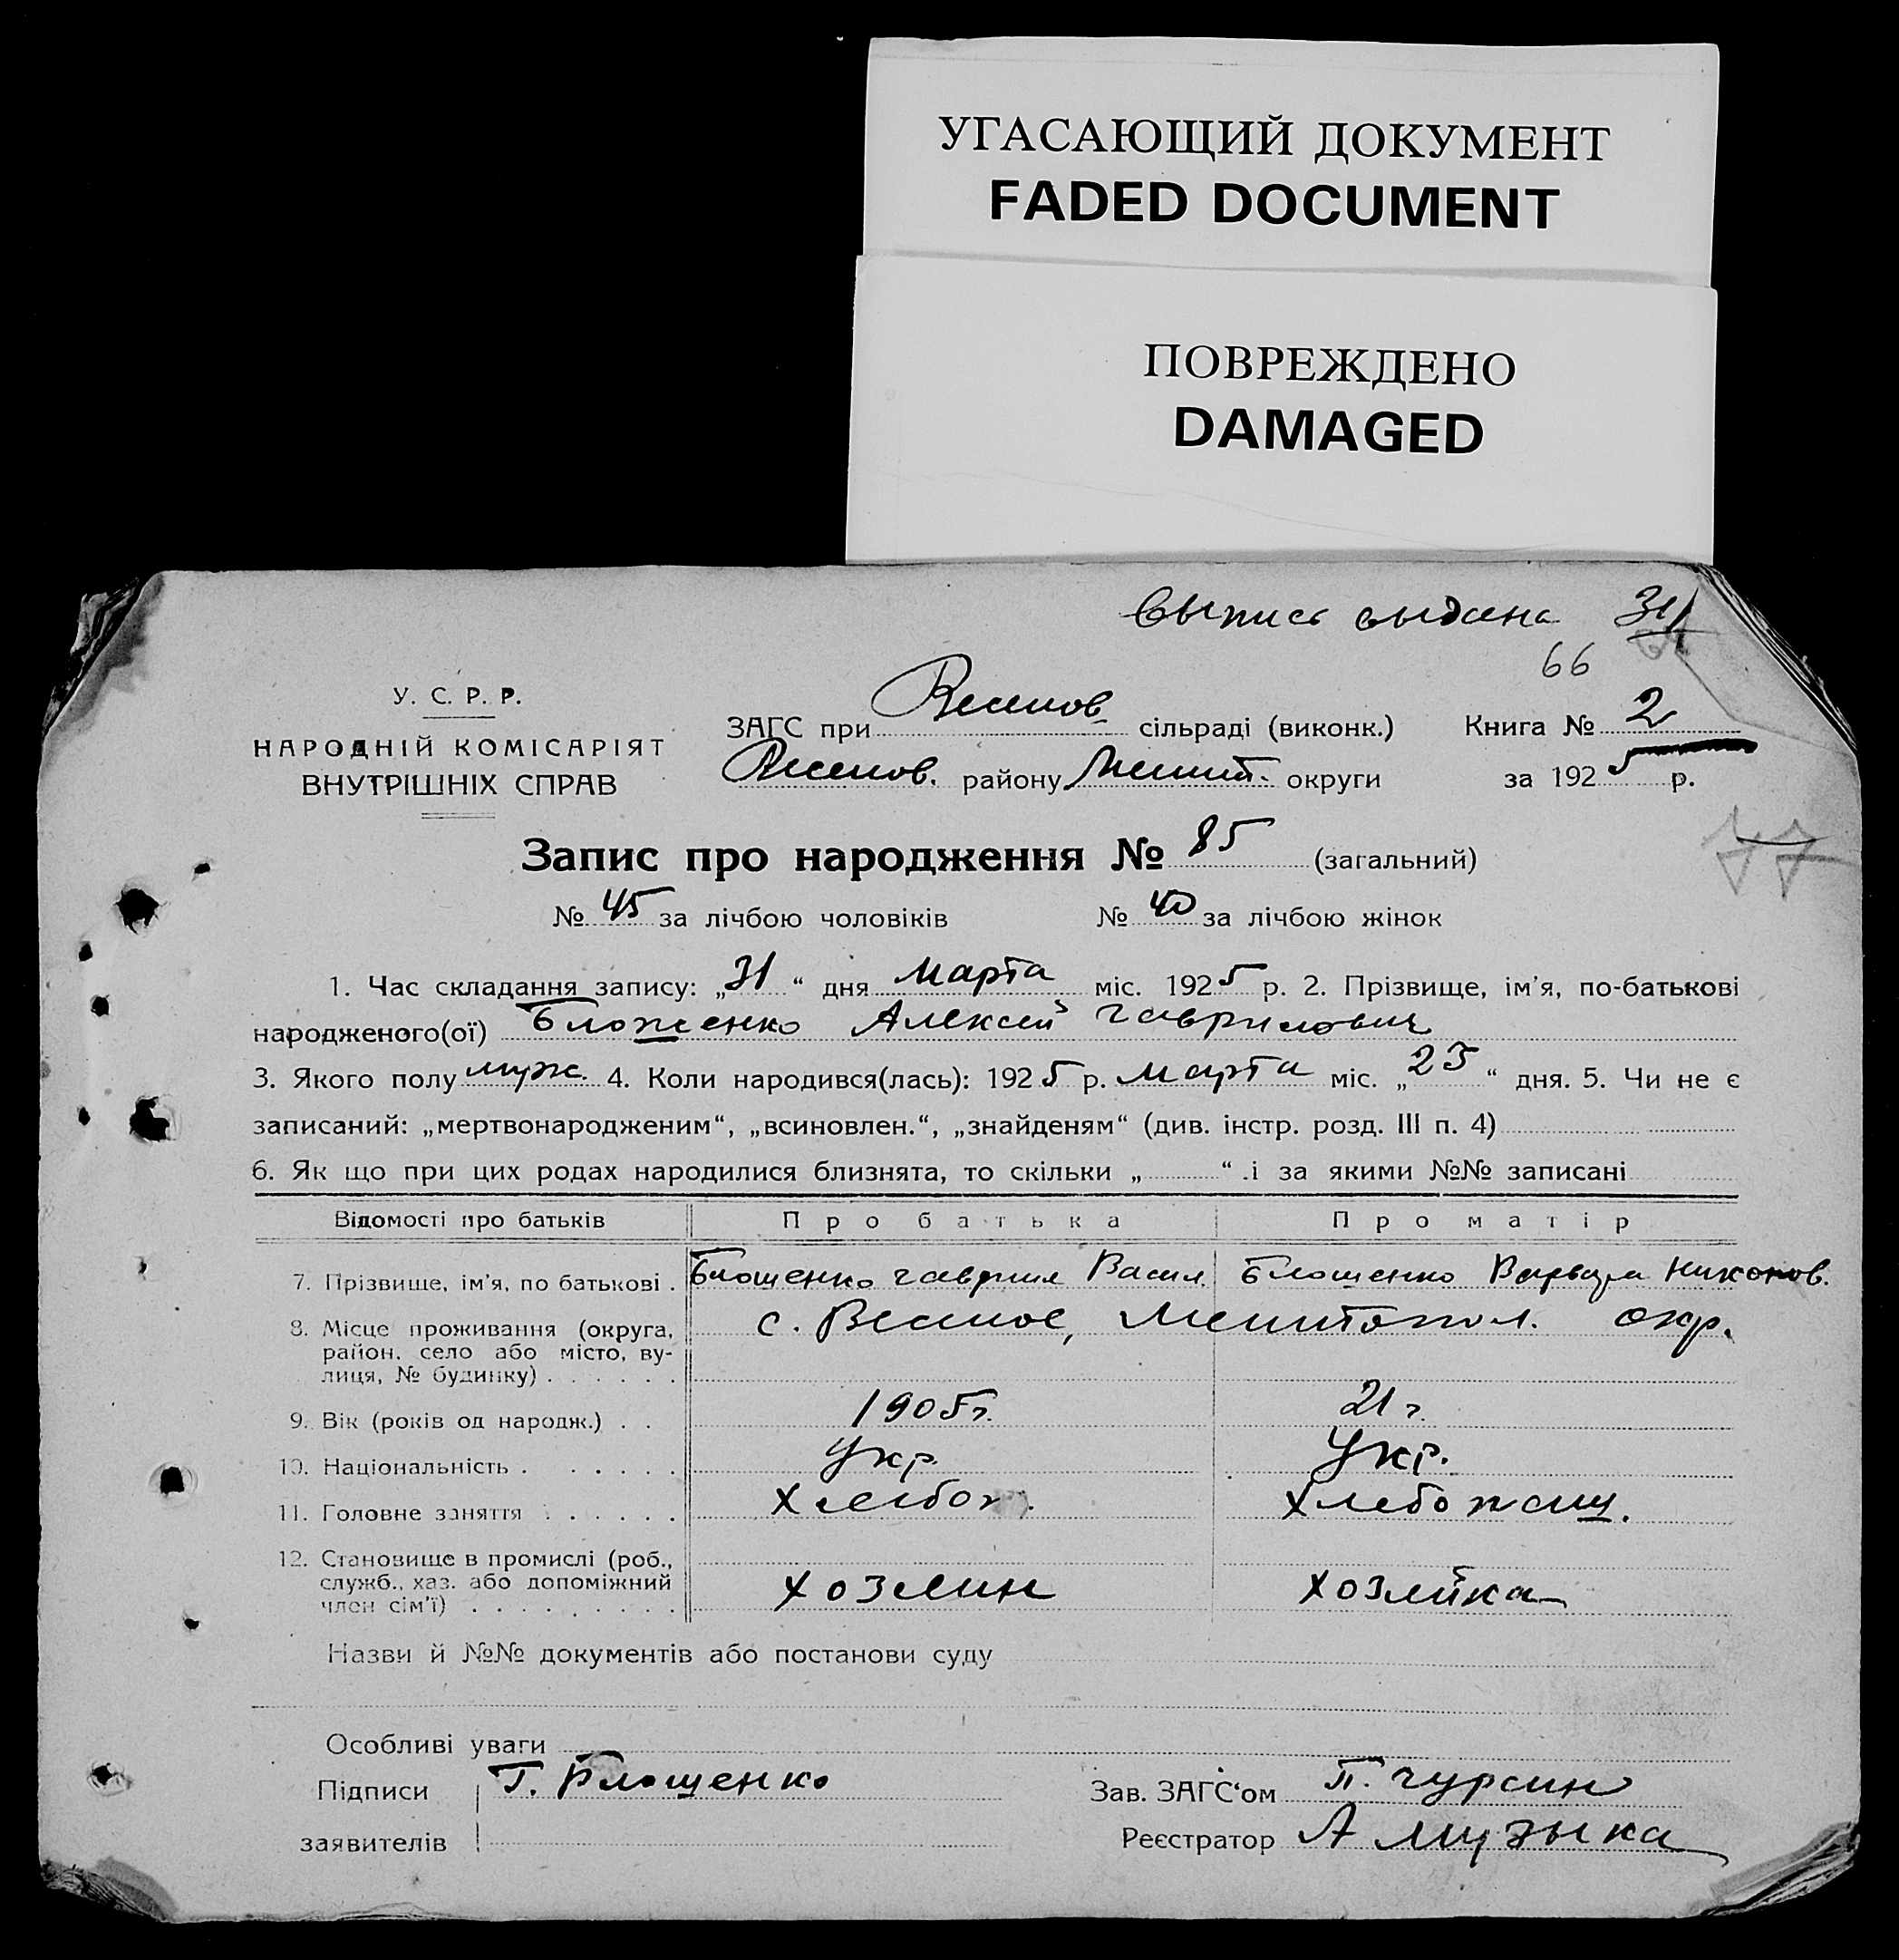 УГАСАЮЩИЙ ДОКУМЕНТ
FADED DOCUMENT
ПОВРЕЖДЕНО
DAMAGED
Выпись выдана 31/
66
У. С. Р. Р.
НАРОДНІЙ КОМІСАРІЯТ
ВНУТРІШНІХ СПРАВ
ЗАГС при Веселов. сільраді (виконк.) Книга № 2
Веселов. району Мелит. округи за 1925 р.
77
Запис про народження № 85 (загальний)
№ 45 за лічбою чоловіків № 40 за лічбою жінок
1. Час складання запису: „31“ дня Марта міс. 1925 р. 2. Прізвище, ім'я, по-батькові
народженого(ої) Блошенко Алексей Гаврилович
3. Якого полу муж. 4. Коли народився(лась): 1925 р. Марта міс. „25“ дня. 5. Чи не є
записаний: „мертвонародженим“, „всиновлен.“, „знайденям“ (див. інстр. розд. III п. 4)
6. Як що при цих родах народилися близнята, то скільки „ “ .і за якими №№ записані
Відомості про батьків Про батька Про матір
7. Прізвище, ім'я, по батькові . Блошенко Гаврил Васил. Блошенко Варвара Никонов.
8. Місце проживання (округа, с. Веселое, Мелитопол. окр.
район, село або місто, ву-
лиця, № будинку) . . . . . .
9. Вік (років од народж.) . . 1905 г. 21 г.
10. Національність . . . . . Укр. Укр.
11. Головне заняття . . . . . . Хлебоп. Хлебопащ.
12. Становище в промислі (роб.,
служб., хаз. або допоміжний хозяин хозяйка
член сім'ї) . . . . . . . . .
Назви й №№ документів або постанови суду
Особливі уваги
Підписи Г. Блошенко Зав. ЗАГС‘ом П. Чурсин
заявителів Реєстратор А Музыка